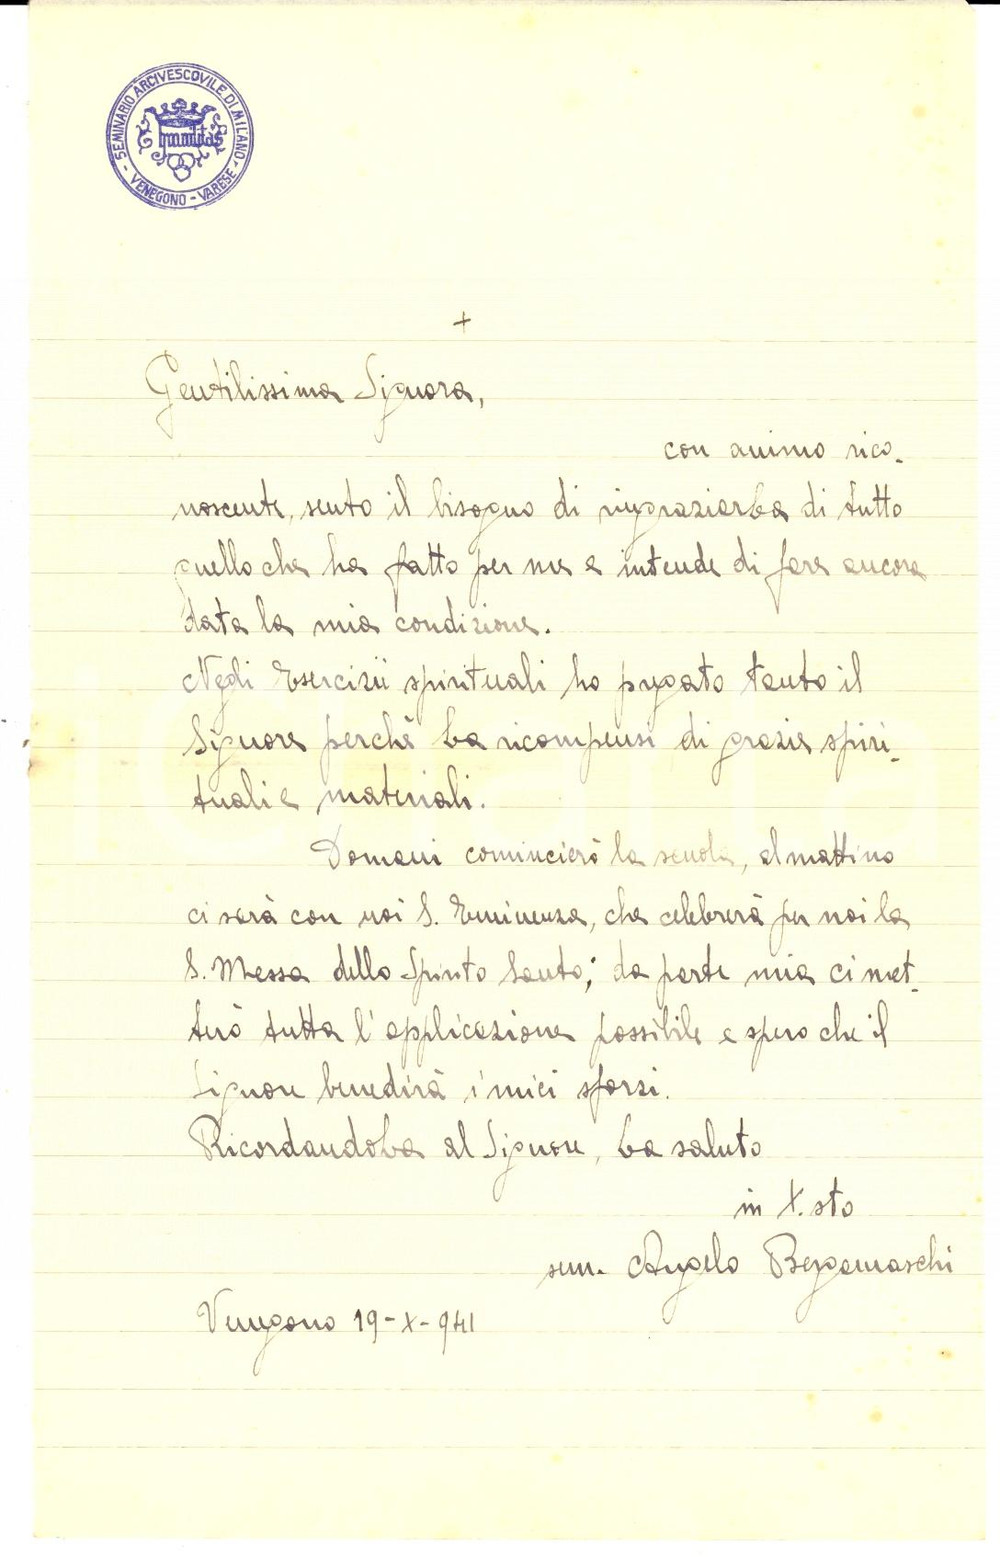 SEMINARIO ARCIVESCOVILE DI MILANO
VENEGONO - VARESE
humilitas
+
Gentilissima Signora,
con animo rico-
noscente, sento il bisogno di ringraziarLa di tutto
quello che ha fatto per me e intende di fare ancora
data la mia condizione.
Negli Esercizii spirituali ho pregato tanto il
Signore perchè La ricompensi di grazie spiri-
tuali e materiali.
Domani comincierà la scuola, al mattino
ci sarà con noi S. Eminenza, che celebrerà per noi la
S. Messa dello Spirito Santo; da parte mia ci met-
terò tutta l'applicazione possibile e spero che il
Signore benedirà i miei sforzi.
RicordandoLa al Signore, La saluto
in X.sto
sem. Angelo Bergamaschi
Venegono 19-X-941